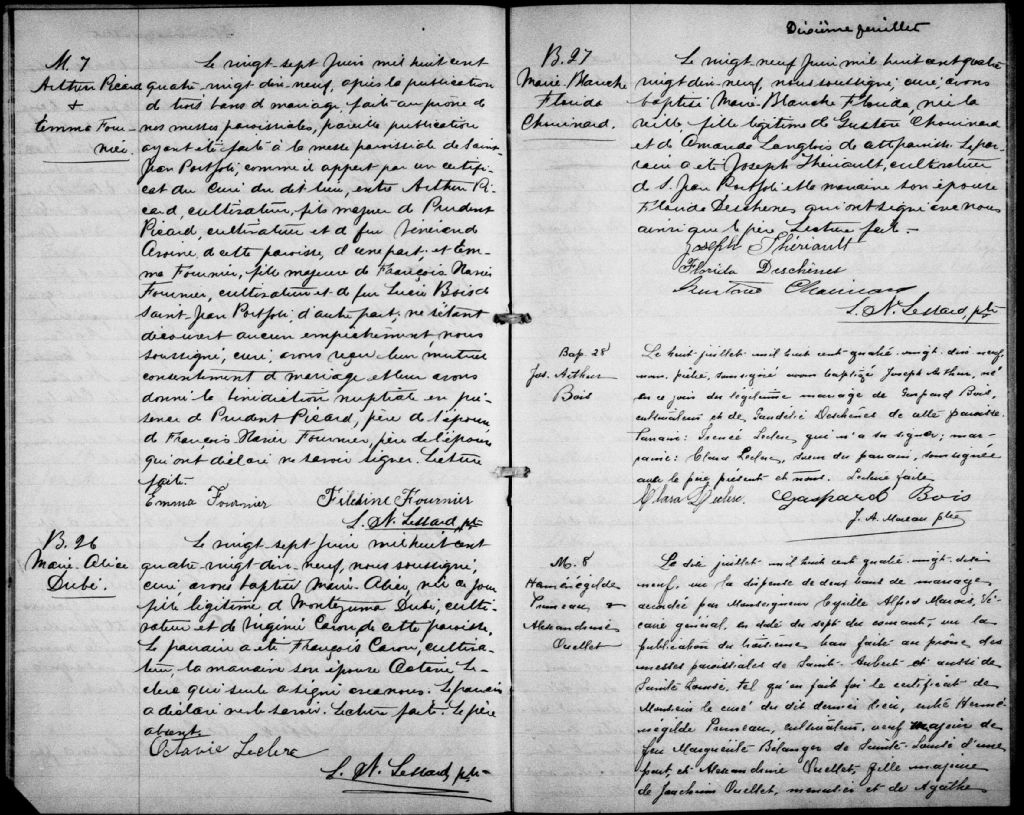 M. 7
Arthur Picard
&
Emma Four-
nier.
Le vingt-sept Juin mil huit cent
quatre-vingt-dix-neuf, après la publication
de trois bans de mariage, faite au prône de
nos messes paroissiales, pareille publication
ayant été faite à la messe paroissiale de Saint-
Jean Portjoli, comme il appert par un certifi-
cat du Curé du dit lieu, entre Arthur Pi-
card, cultivateur, fils majeur de Prudent
Picard, cultivateur et de feu
de cette paroisse, d'une part; et Em-
ma Fournier, fille majeure de François Xavier
Fournier, cultivateur et de feu Lucie Bois de
Saint-Jean Portjoli, d'autre part; ne s'étant
découvert aucun empêchement, nous
soussigné, curé, avons reçu leur mutuel
consentement de mariage et leur avons
donné la bénédiction nuptiale en pré-
sence de Prudent Picard, père de l'époux,
de François Xavier Fournier, père de l'épouse
qui ont déclaré ne savoir signer. Lecture
faite.
Emma Fournier Fournier
L. N. Lessard, ptre
B. 26
Marie-Alice
Dubé.
Le vingt-sept Juin mil huit cent
quatre-vingt-dix-neuf, nous soussigné,
curé, avons baptisé Marie-Alice, née ce jour
fille légitime de Montezuma Dubé, culti-
vateur et de Virginie Caron, de cette paroisse.
Le parrain a été François Caron, cultiva-
teur, la marraine son épouse Octavie Le-
clerc qui seule a signé avec nous. Le parrain
a déclaré ne le savoir. Lecture faite. Le père
absent.
Octavie Leclerc
L. N. Lessard, ptre
Dixième feuillet
B. 27
Marie-Blanche
Florida
Chouinard.
Le vingt-neuf Juin mil huit cent quatre
vingt-dix-neuf, nous soussigné, curé, avons
baptisé Marie-Blanche Florida, née la
veille, fille légitime de Gustave Chouinard
et de Amanda Langlois de cette paroisse. Le par-
rain a été Joseph Thériault, cultivateur
de S. Jean Portjoli et la marraine son épouse
Florida Deschenes qui ont signé avec nous
ainsi que le père. Lecture faite.
Joseph Thériault
Florida Deschênes
Gustave Chouinard
L. N. Lessard, ptre
Bap. 28
Jos. Arthur
Bois
Le huit juillet mil huit cent quatre-vingt-dix-neuf,
nous, prêtre, soussigné avons baptizé Joseph Arthur, né
en ce jour du légitime mariage de Gaspard Bois,
cultivateur et de Deschênes de cette paroisse.
Parrain: Irenée Leclerc qui n'a su signer; mar-
raine: Clara Leclerc, soeur du parrain, soussignée
avec le père présent et nous. Lecture faite
Clara Leclerc. Gaspard Bois
J. A. Moreau ptre
M. 8
Herménégilde
Pruneau &
Alexandrine
Ouellet
Le dix juillet mil huit cent quatre-vingt-dix-
neuf, vu la dispense de deux bans de mariage
accordée par Monseigneur Cyrille Alfred Marois, Vi-
caire général, en date du sept du courant, vu la
publication du troisième ban faite au prône des
messes paroissiales de Saint-Aubert et aussi de
Sainte Louise, tel qu'en fait foi le certificat de
Monsieur le curé du dit dernier lieu, entre Hermé-
négilde Pruneau, cultivateur, veuf majeur de
feu Marguerite Belanger de Sainte-Louise d'une
part, et Alexandrine Ouellet, fille majeure
de Joachim Ouellet, menuisier et de Agathe